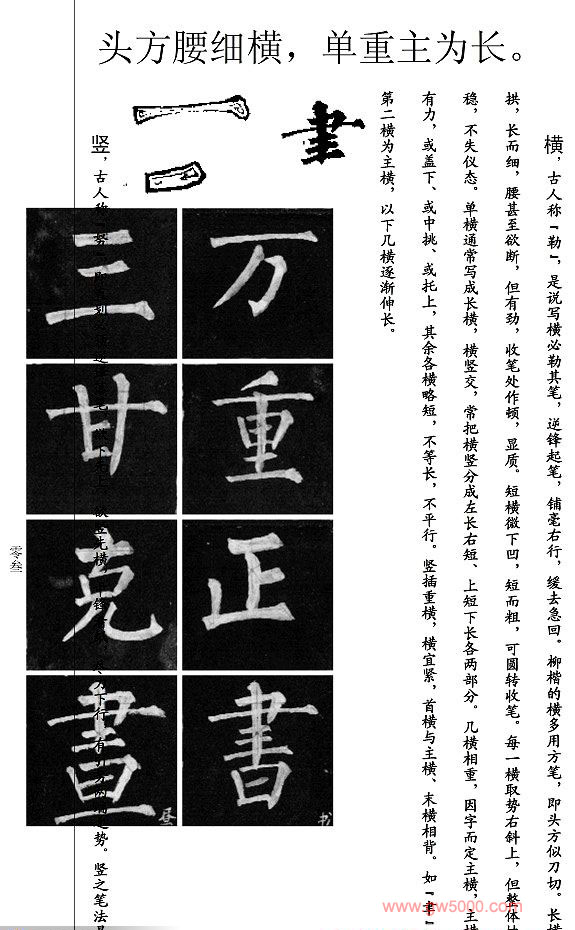 头方腰细横，单重主为长。
書
横，古人称『勒』，是说写横必勒其笔，逆锋起笔，铺毫右行，缓去急回。柳楷的横多用方笔，即头方似刀切。长横
拱，长而细，腰甚至欲断，但有劲，收笔处作顿，显质。短横微下凹，短而粗，可圆转收笔。每一横取势右斜上，但整体
稳，不失仪态。单横通常写成长横，横竖交，常把横竖分成左长右短、上短下长各两部分。几横相重，因字而定主横，主横
有力，或盖下、或中挑、或托上，其余各横略短，不等长，不平行。竖插重横，横宜紧，首横与主横、末横相背。如『書』
第二横为主横，以下几横逐渐伸长。
万
重
正
書
书
三
甘
克
晝
昼
竖，古人称
下行，有
势。竖之笔法
零叁